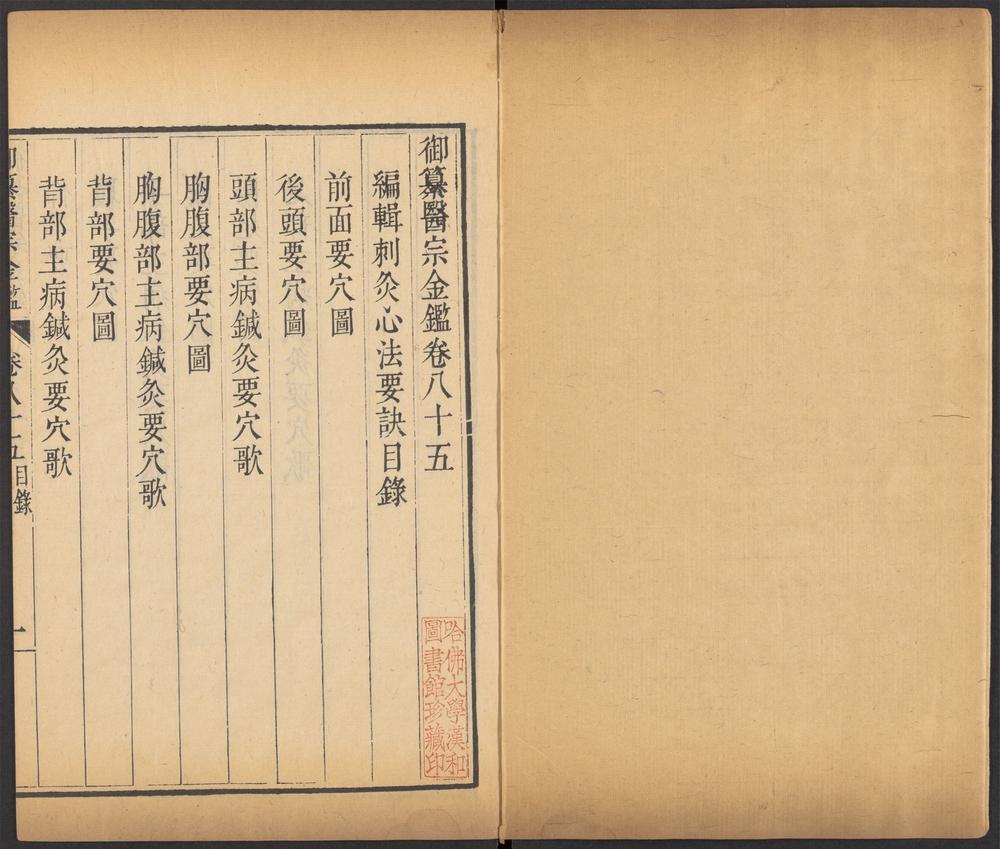 御纂醫宗金鑑卷八十五
編輯刺灸心法要訣目錄
前面要穴圖
後頭要穴圖
頭部主病鍼灸要穴歌
胸腹部要穴圖
胸腹部主病鍼灸要穴歌
背部要穴圖
背部主病鍼灸要穴歌
御纂醫宗金鑑 卷八十五目錄 一
哈佛大學漢和
圖書館珍藏印